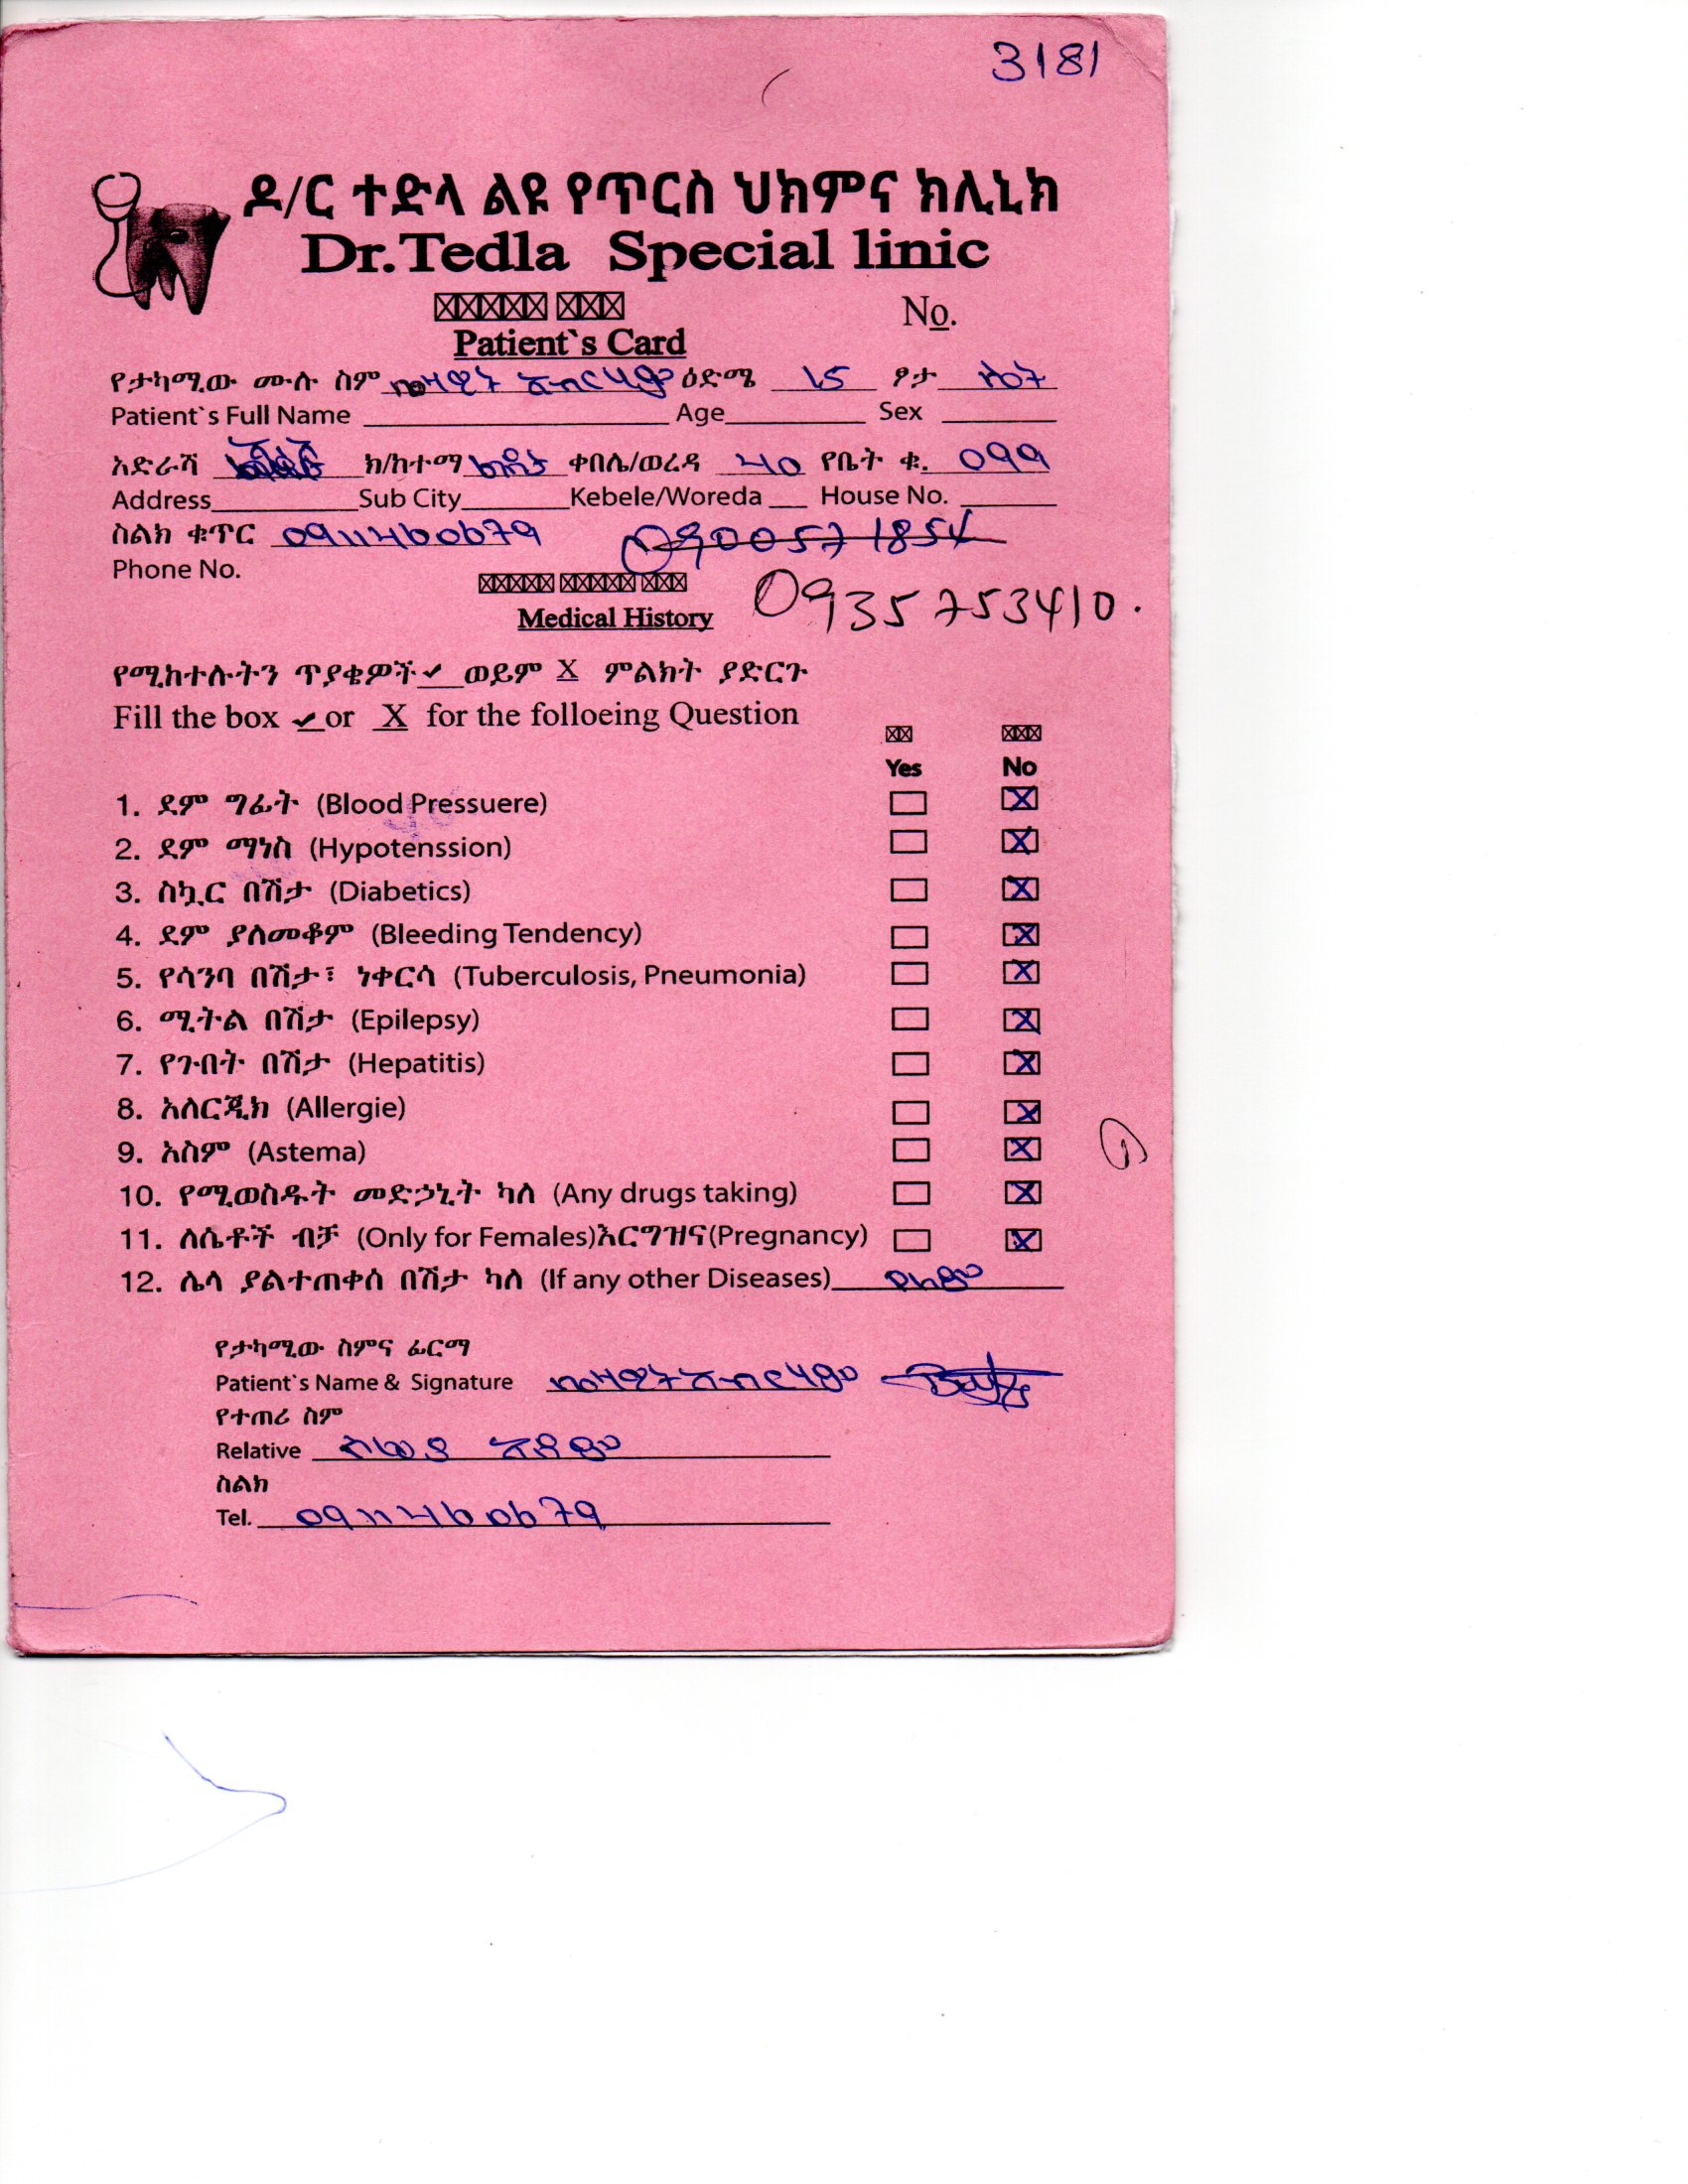 3181
ዶ/ር ተድላ ልዩ የጥርስ ህክምና ክሊኒክ
Dr.Tedla Special linic
No.
Patient`s Card
የታካሚው ሙሉ ስም አብርሃም ዕድሜ 15 ፆታ ሴት
Patient`s Full Name Age Sex
አድራሻ ክ/ከተማ ቀበሌ/ወረዳ 40 የቤት ቁ. 099
Address Sub City Kebele/Woreda House No.
ስልክ ቁጥር 0911460679 0900571854
Phone No.
0935753410.
Medical History
የሚከተሉትን ጥያቄዎች ✓ ወይም X ምልክት ያድርጉ
Fill the box ✓ or X for the folloeing Question
Yes No
1. ደም ግፊት (Blood Pressuere)
2. ደም ማነስ (Hypotenssion)
3. ስኳር በሽታ (Diabetics)
4. ደም ያለመቆም (Bleeding Tendency)
5. የሳንባ በሽታ፣ ነቀርሳ (Tuberculosis, Pneumonia)
6. ሚትል በሽታ (Epilepsy)
7. የጉበት በሽታ (Hepatitis)
8. አለርጂክ (Allergie)
9. አስም (Astema)
10. የሚወስዱት መድኃኒት ካለ (Any drugs taking)
11. ለሴቶች ብቻ (Only for Females)እርግዝና(Pregnancy)
12. ሌላ ያልተጠቀሰ በሽታ ካለ (If any other Diseases) የለም
የታካሚው ስምና ፊርማ
Patient`s Name & Signature አብርሃም
የተጠሪ ስም
Relative አዳም
ስልክ
Tel. 0911460679